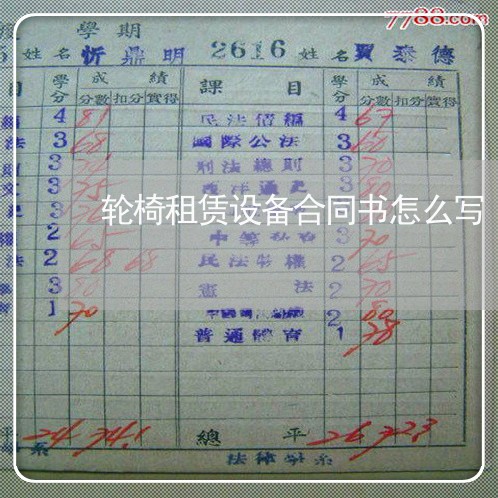 7788.com
學期
姓名忻鼎明 2616 姓名賈泰德
目 學分 成績 分數 扣分 實得 課目 學分 成績 分數 扣分 實得
4 81 民法債編 4 67
法 3 68 國際公法 3 60
3 刑法總則 3 70
3 75 西洋通史 3 80
轮椅租赁设备合同书怎么写
2 65 3 70
法 2 68 68 民法物權 2 65
3 80 憲法 2 70
1 70 2 80
普通體育 1 78
平 24 74.1 總平 26 72.3
系 法律學系